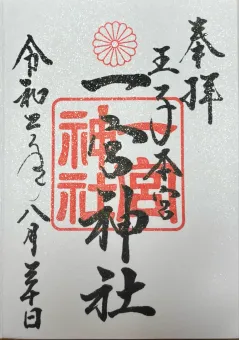 奉拝
王子ノ本宮
一宮神社
一宮神社
令和 年八月 日